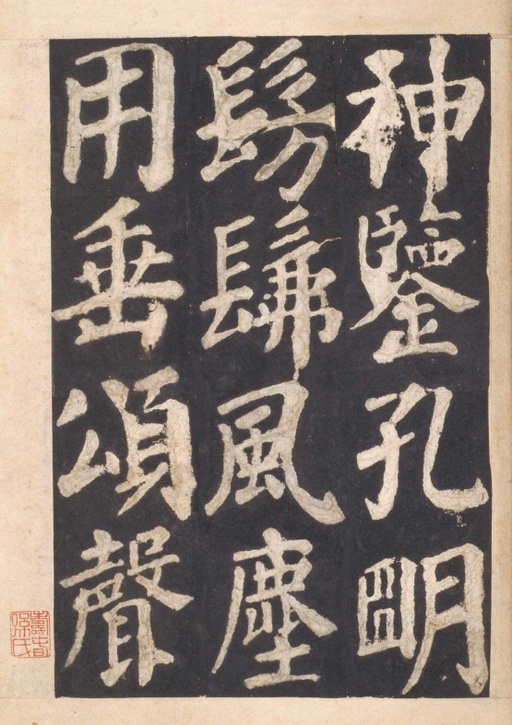 神鑒孔明
髣髴風塵
用垂頌聲